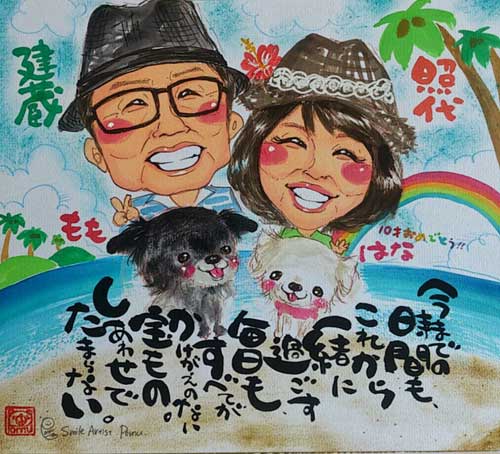 建蔵
照代
もも
10才おめでとう!!
はな
今までの
時間も、
これから
一緒に
過ごす
毎日も
すべてが
かけがえのない
宝もの。
しあわせで
たまらない。
Smile Artist